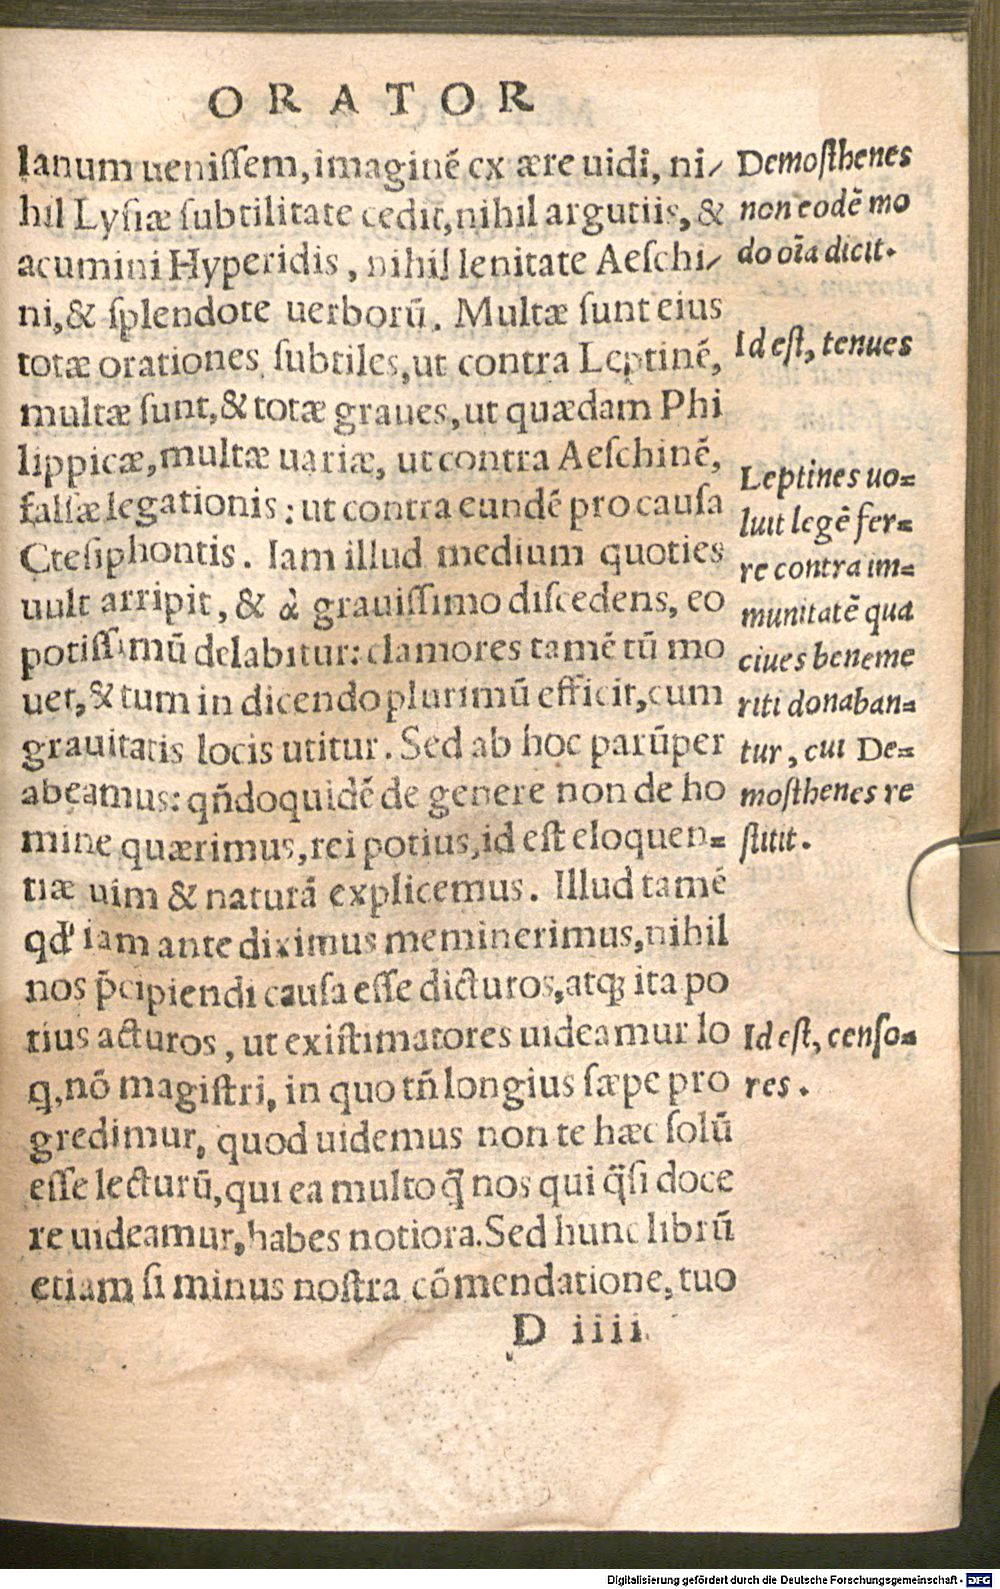 ORATOR
lanum ueniſſem, imaginẽ ex ære uidi, ni⸗
hil Lyſiæ ſubtilitate cedit, nihil argutiis, &
acumini Hyperidis, nihil lenitate Aeſchi⸗
ni, & ſplendote uerborũ. Multæ ſunt eius
totæ orationes ſubtiles, ut contra Leptinẽ,
multæ ſunt, & totæ graues, ut quædam Phi
lippicæ, multæ uariæ, ut contra Aeſchinẽ,
falſæ legationis: ut contra eundẽ pro cauſa
Cteſiphontis. Iam illud medium quoties
uult arripit, & à grauiſſimo diſcedens, eo
potiſſimũ delabitur: clamores tamẽ tũ mo
uet, & tum in dicendo plurimũ efficit, cum
grauitatis locis utitur. Sed ab hoc parũper
abeamus: qñdoquidẽ de genere non de ho
mine quærimus, rei potius, id eſt eloquen⸗
tiæ uim & naturã explicemus. Illud tamẽ
qd' iam ante diximus meminerimus, nihil
nos p̃cipiendi cauſa eſſe dicturos, atq; ita po
tius acturos, ut exiſtimatores uideamur lo
q, nõ magiſtri, in quo tñ longius ſæpe pro
gredimur, quod uidemus non te hæc ſolũ
eſſe lecturũ, qui ea multo q̃ nos qui q̃ſi doce
re uideamur, habes notiora. Sed hunc librũ
etiam ſi minus noſtra cõmendatione, tuo
D iiii
Demoſthenes
non eodẽ mo
do oĩa dicit.
Id eſt, tenues
Leptines uo⸗
luit legẽ fer⸗
re contra im⸗
munitatẽ qua
ciues beneme
riti donaban⸗
tur, cui De⸗
moſthenes re
ſtitit.
Id eſt, cenſo⸗
res.
Digitalisierung gefördert durch die Deutsche Forschungsgemeinschaft - DFG